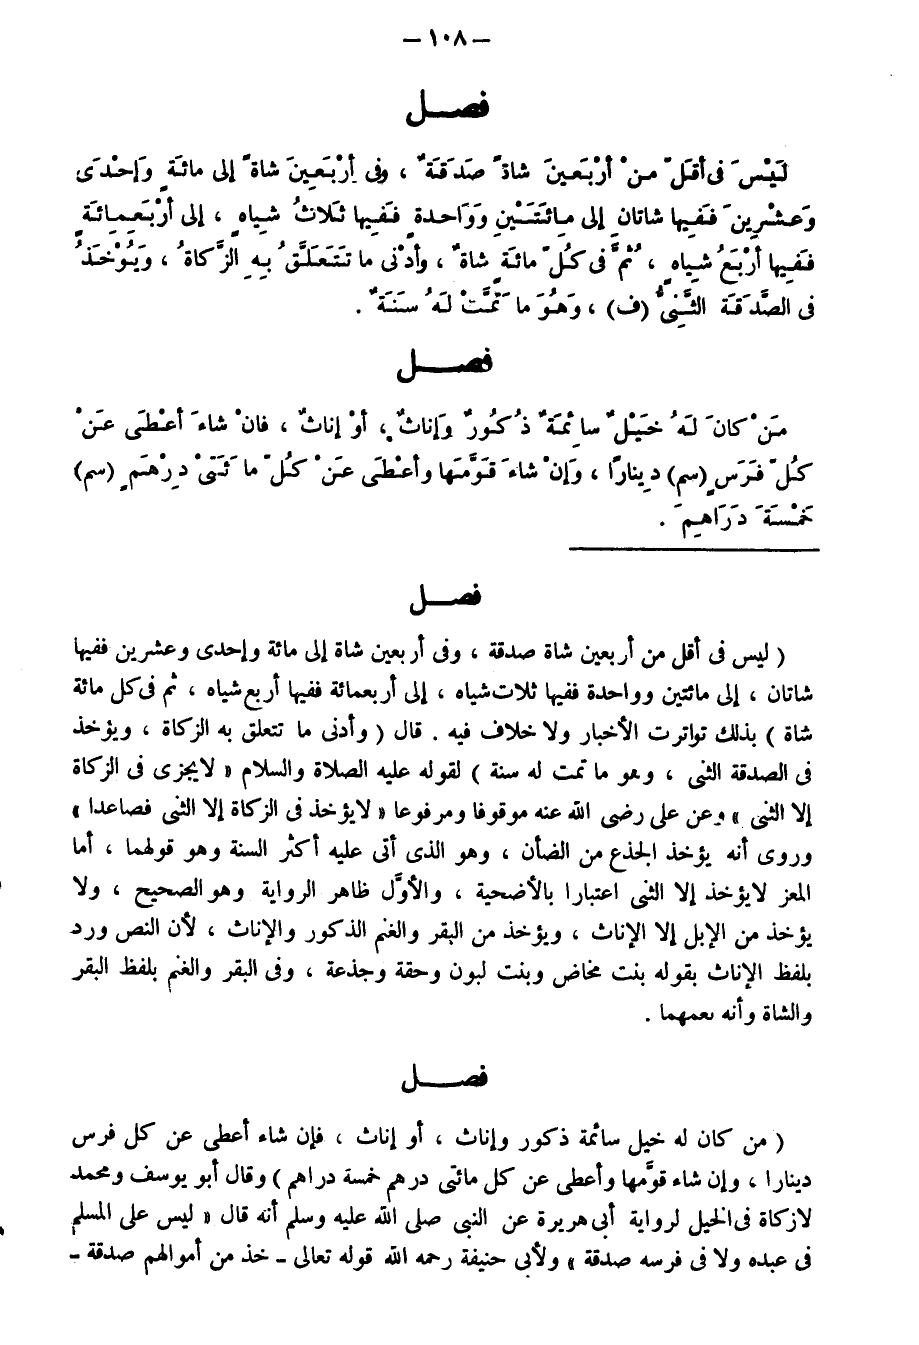 — ١٠٨ —
فصل
لَيْسَ فى أقَلّ مِنْ أرْبَعِينَ شاةً صَدَقَةٌ ، وفى أرْبَعِينَ شاةً إلى مائَةٍ وَإحْدَى
وَعشْرِينَ فَفِيها شاتانِ إلى مِائَتَيْنِ وَوَاحدةٍ فَفِيها ثَلاثُ شِياهٍ ، إلى أرْبَعِمِائَةٍ
فَفِيها أرْبَعُ شِياهٍ ، ثُمَّ فى كُلّ مائَةٍ شاةٌ ، وأدْنى ما تَتَعَلَّقُ بِهِ الزَّكاةُ ، وَيُؤْخَذُ
فى الصَّدَقَة الثَّنِىُّ (ف) ، وَهُوَ ما تَمَّتْ لَهُ سَنَةٌ .
فصل
مَنْ كانَ لَهُ خَيْلٌ سائمَةٌ ذُكُورٌ وَإناثٌ ، أوْ إناثٌ ، فانْ شاءَ أعْطَى عَنْ
كُلّ فَرَسٍ (سم) دِينارًا ، وَإنْ شاءَ قَوَّمَها وأعْطَى عَنْ كُلّ مائَتَىْ دِرْهَمٍ (سم)
خَمْسَةَ دَرَاهِمَ .
فصل
( ليس فى أقل من أربعين شاة صدقة ، وفى أربعين شاة إلى مائة وإحدى وعشرين ففيها
شاتان ، إلى مائتين وواحدة ففيها ثلاث شياه ، إلى أربعمائة ففيها أربع شياه ، ثم فى كل مائة
شاة ) بذلك تواترت الأخبار ولا خلاف فيه . قال ( وأدنى ما تتعلق به الزكاة ، ويؤخذ
فى الصدقة الثنى ، وهو ما تمت له سنة ) لقوله عليه الصلاة والسلام « لا يجزى فى الزكاة
إلا الثنى » وعن على رضى الله عنه موقوفا ومرفوعا « لايؤخذ فى الزكاة إلا الثنى فصاعدا »
وروى أنه يؤخذ الجذع من الضأن ، وهو الذى أتى عليه أكثر السنة وهو قولهما ، أما
المعز لايؤخذ إلا الثنى اعتبارا بالأضحية ، والأوَّل ظاهر الرواية وهو الصحيح ، ولا
يؤخذ من الإبل إلا الإناث ، ويؤخذ من البقر والغنم الذكور والإناث ، لأن النص ورد
بلفظ الإناث بقوله بنت مخاض وبنت لبون وحقة وجذعة ، وفى البقر والغنم بلفظ البقر
والشاة وأنه يعمهما .
فصل
( من كان له خيل سائمة ذكور وإناث ، أو إناث ، فإن شاء أعطى عن كل فرس
دينارا ، وإن شاء قوَّمها وأعطى عن كل مائتى درهم خمسة دراهم ) وقال أبو يوسف ومحمد
لازكاة فى الخيل لرواية أبى هريرة عن النبى صلى الله عليه وسلم أنه قال « ليس على المسلم
فى عبده ولا فى فرسه صدقة » ولأبى حنيفة رحمه الله قوله تعالى ـ خذ من أموالهم صدقة ـ